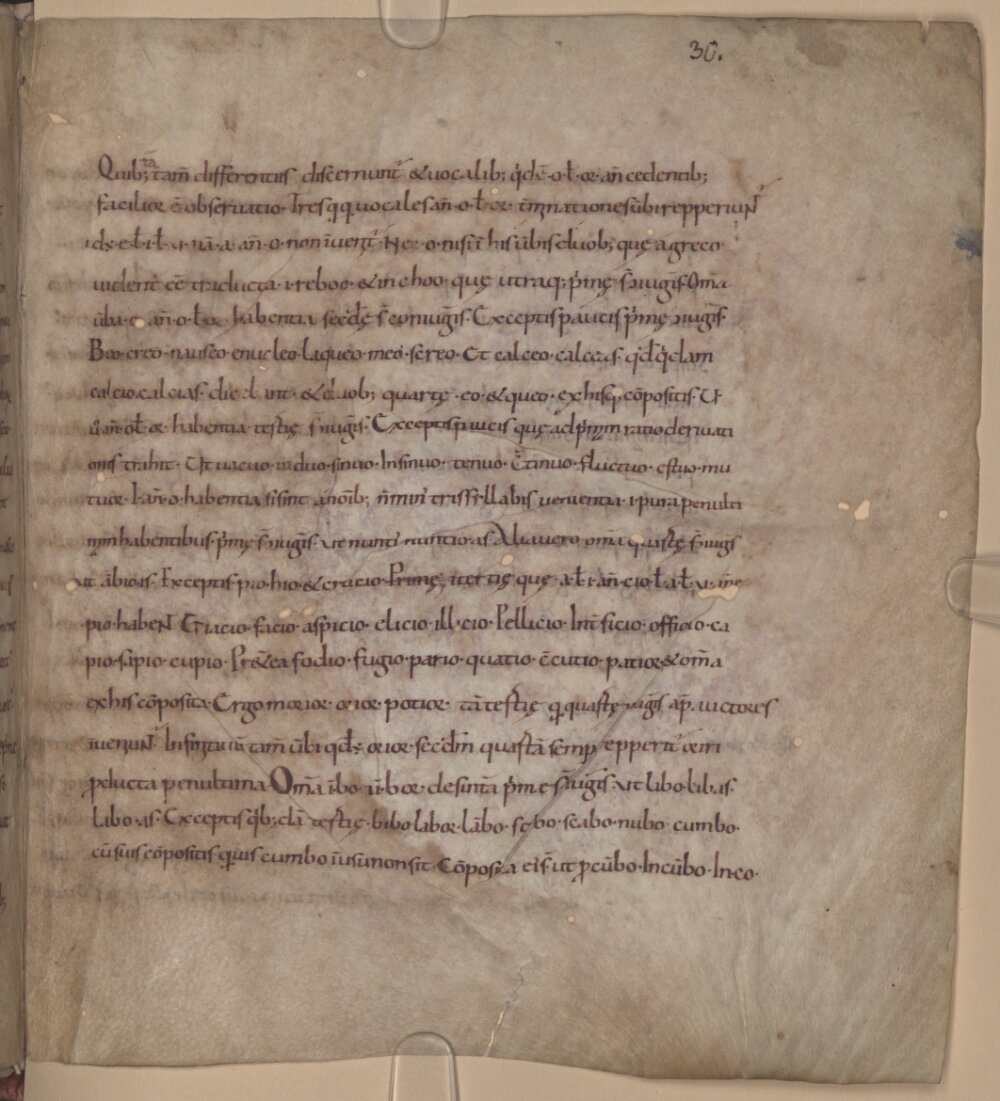 30.
Quib; tam̄ differentiis discernunt᷑ & uocalib; q̇dē o ł or an̄cedentib;
facilior ē obseruatio. Tres q̨q uocales an̄ o ł or t̄minatione s ubi repperiuN᷑
id; e ł i ł u nā a an̄ o non īuenit᷑. Nec o nisi ī his ūbis duob; quę a greco
uident᷑ eē traducta. reboo & inchoo quę utraq; p̄mę s̄ iugis. Om̄a
ūba e an̄ o ł or habentia sec̄dę s̄ coniugis̄. Exceptis paucis p̄mę iugis̄
Beo creo nauseo enucleo laqueo meo screo. Et calceo calceas qd̄ q̇dam
calcio calcias dic unt & duob; quartę eo & queo exhisq; cōpositis. U
ū an̄ o ł or habentia tertię s̄ iugis̄. Exceptis paucis quę ad p̄mam ratio deriuati
onis trahit. Ut uacuo uiduo sinuo. Insinuo tenuo. Ētinuo fluctuo estuo mu
tuor. I an̄ o habentia si sint a noīb; n̄ min trissyllabis uenientia i pura penulti
mam habentibus p̄mę s̄ iugis̄. ut nunti nuntio as. Alia uero om̄a quartę s̄ iugis
ut ābio is. Exceptis pio hio & crucio. Primę, i tertię quę a ł i an̄ cio ł a ł u an̄
pio habeN᷑. Glacio facio aspicio elicio illicio. Pellicio. Int̄ficio officio ca
pio sapio cupio. Pret̄ea fodio fugio pario quatio c̄cutio patior & om̄a
ex his cōposita. Ergo morior orior potior tā tertię q̄ quartę iugis̄ ap̄ auctores
īueniuN᷑. Infinitiuū tam̄ ubi q̇dē orior sec̄dm̄ quartā semp̄ repperit᷑ oriri
p̄ducta penultima. Om̄a ī bo ī bor desinentia p̄me s̄ iugis̄. ut libo libas.
labo as. Exceptis q̇b;dā tertię. bibo labor lābo scbo scabo nubo cumbo.
cū suis cōpositis quis cumbo ī usu non sit. Cōposita eīs̄ ut p̄cūbo. Incūbo. In eo